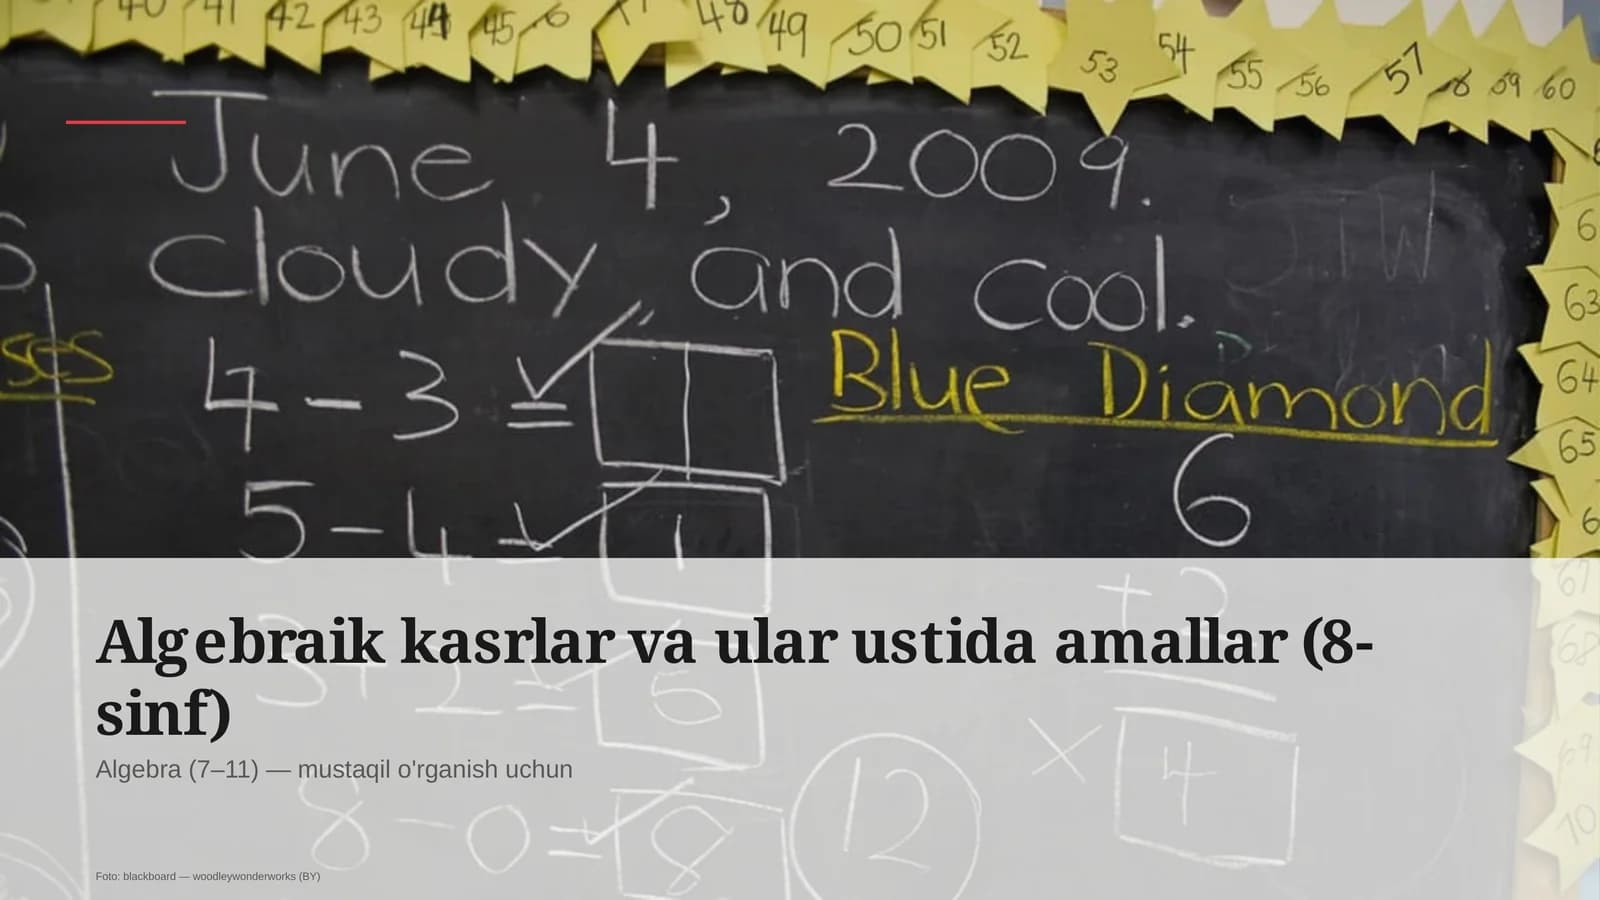 40 41 42 43 44 45 49 50 51 52 53 54 55 56 57 58 59 60
June 4, 2009.
cloudy and cool.
Blue Diamond
4 - 3 =
6
5 - 4 = 1
+ 2
3 + 2 = 5
x 4
12
8 - 0 = 8
63
64
65
67
68
69
70
Algebraik kasrlar va ular ustida amallar (8-
sinf)
Algebra (7–11) — mustaqil o'rganish uchun
Foto: blackboard — woodleywonderworks (BY)